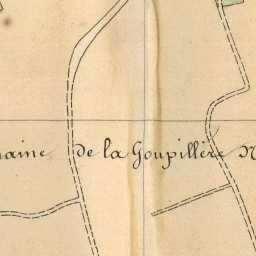 maine de la Goupillère N